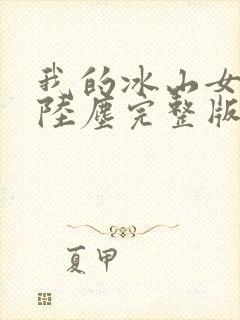 我的冰山女
陸塵完整版
夏甲